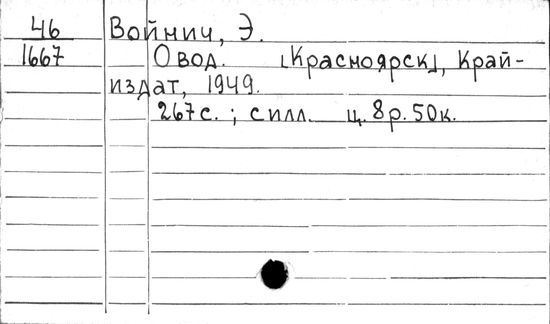 46 Войнич, Э.
1667 Овод. [Красноярск], Край-
издат, 1949.
267 с. ; с илл. ц. 8 р. 50 к.